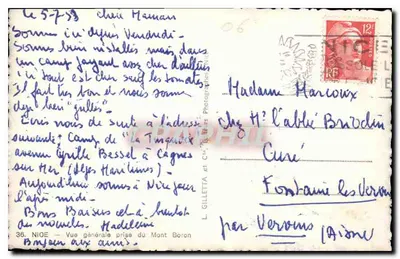 le 5-7-53 chère Maman
Sommes ici depuis Vendredi.
Sommes bien installés mais dans
un camp payant, assez cher d'ailleurs
ici tout est cher sauf les tomates.
Il fait très bon et nous sommes
déjà bien "grillés".
Ecris nous de suite à l'adresse
suivante: Camp de "la
avenue Cyrille Besset à Cagnes
sur Mer (Alpes Maritimes).
Aujourd'hui sommes à Nice pour
l'après midi.
Bons Baisers et à bientôt
de nouvelles. Madeleine
36. NICE - Vue générale prise du Mont Boron
Bonjour aux amis.
L. GILLETTA et Cie
NICE
12F
RF
Madame Marcoux
chez Mr l'abbé
Curé
Fontaine les Vervins
par Vervins (Aisne)